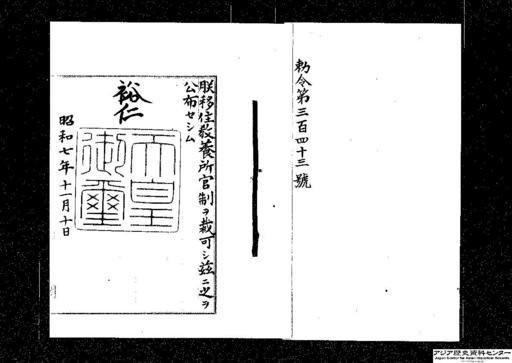 勅令第三百四十三號
朕移住教養所官制ヲ裁可シ茲ニ之ヲ
公布セシム
裕仁
天皇
御璽
昭和七年十一月十日
アジア歴史資料センター
Japan Center for Asian Historical Records